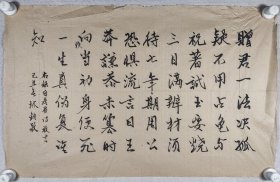 贈君一法決狐
疑不用占龟与
祝蓍試玉要烧
三日满辨材須
待七年期周公
恐惧流言日王
莽謙恭未篡時
向使当初身便死
一生真偽复谁
知
白居易诗放言
己丑